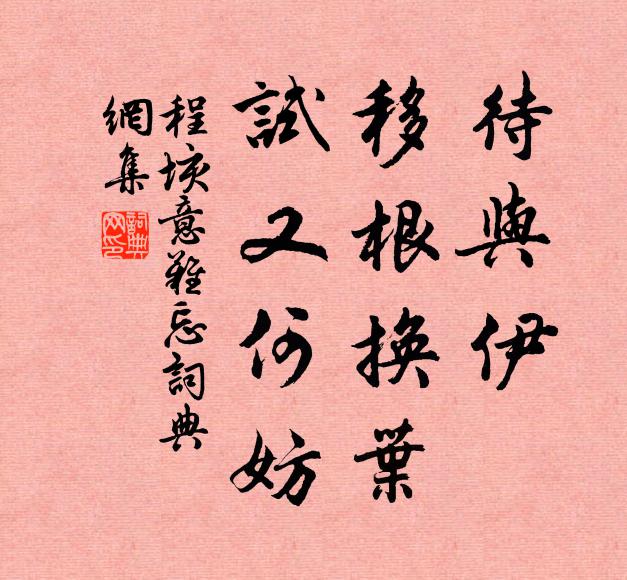 待與伊
移根換葉
試又何妨
程垓意難忘詞典
網集
詞典網印